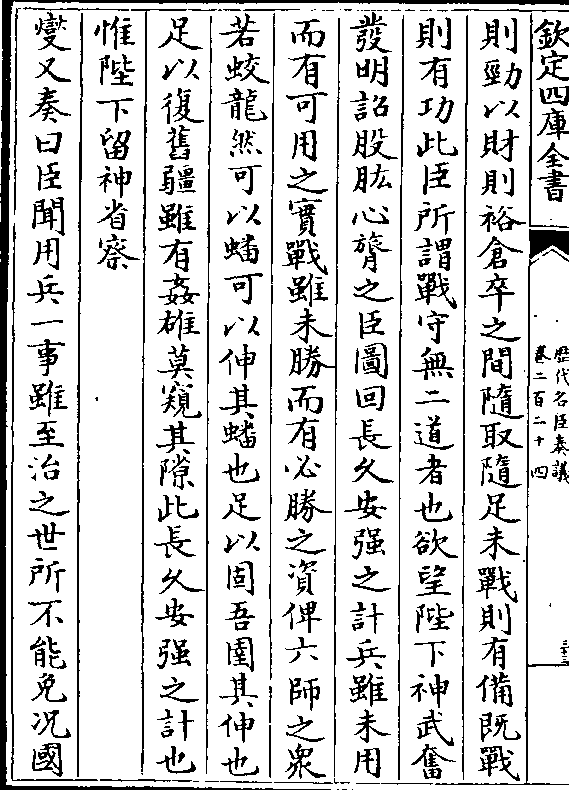 欽定四庫全書
歷代名臣奏議
卷二百二十四
則勁以財則裕倉卒之間隨取隨足未戰則有備既戰
則有功此臣所謂戰守無二道者也欲望陛下神武奮
發明詔股肱心膂之臣圖回長久安强之計兵雖未用
而有可用之實戰雖未勝而有必勝之資俾六師之衆
若蛟龍然可以蟠可以伸其蟠也足以固吾圉其伸也
足以復舊疆雖有姦雄莫窺其隙此長久安强之計也
惟陛下留神省察
燮又奏曰臣聞用兵一事雖至治之世所不能免况國